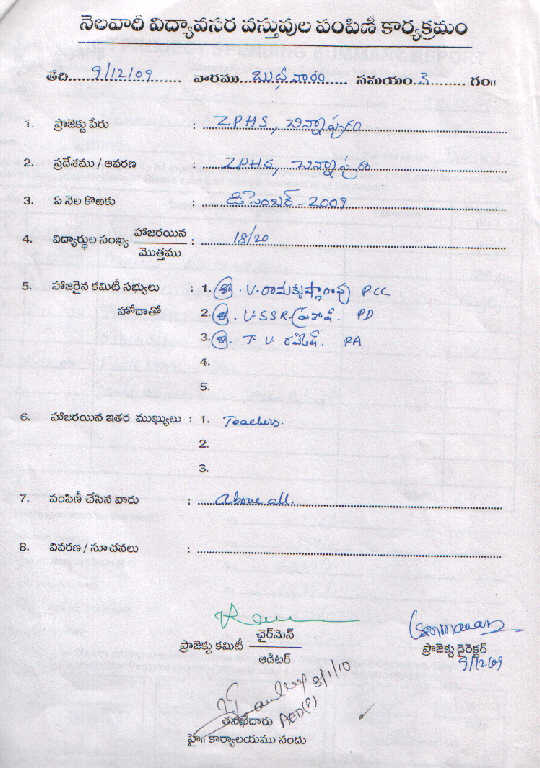 నెలవారీ విద్యావసర వస్తువుల పంపిణీ కార్యక్రమం
తేది. 9/12/09 వారము బుధవారం సమయం. గం॥
1. ప్రాజెక్టు పేరు : ZPHS, చిన్నాపురం
2. ప్రదేశము / ఆవరణ : ZPHS, చిన్నాపురం
3. ఏ నెల కొఱకు : డిసెంబర్ - 2009
4. విద్యార్థుల సంఖ్య హాజరయిన / మొత్తము : 18/20
5. హాజరైన కమిటీ సభ్యులు : 1. శ్రీ. V. రామకృష్ణారావు PCC
హోదాతో 2. శ్రీ. U.S.S.R. ప్రసాద్. PD
3. శ్రీ. T. V. రమేష్. PA
4.
5.
6. హాజరయిన ఇతర ముఖ్యులు : 1. Teachers.
2.
3.
7. పంపిణీ చేసిన వారు : Above all.
8. వివరణ / సూచనలు :
ప్రాజెక్టు కమిటీ ఛైర్‌మెన్ / ఆడిటర్
ప్రాజెక్టు డైరెక్టర్
9/12/09
8/1/10
తనిఖీదారు AED(P)
కార్యాలయము నందు